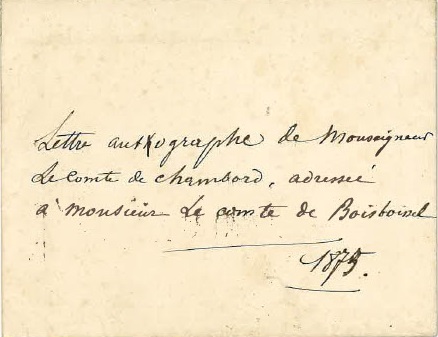 Lettre authographe de Monseigneur
Le Comte de Chambord, adressée
à Monsieur Le Comte de Boisboissel
1875.